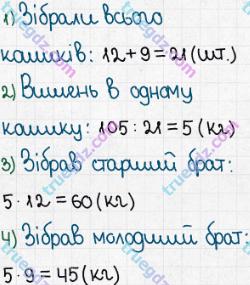 1) Зібрали всього
кошиків: 12+9=21(шт.)
2) Вишень в одному
кошику: 105:21=5(кг)
3) Зібрав старший брат:
5·12=60(кг)
4) Зібрав молодший брат:
5·9=45(кг)